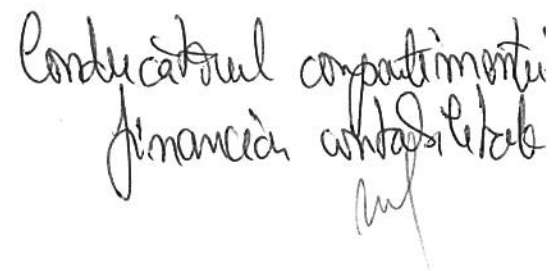 Conducătorul compartimentu
financiar contabilitate